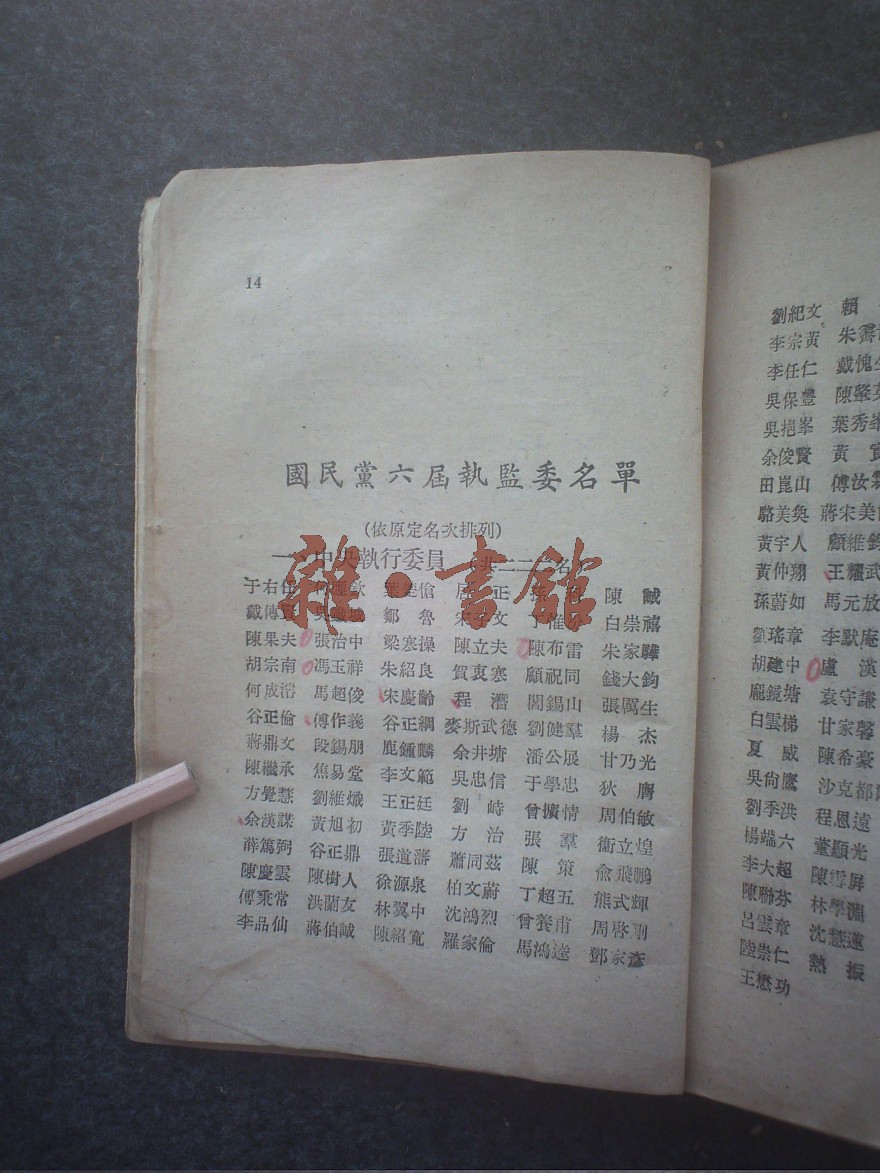 14
國民黨六屆執監委名單
(依原定名次排列)
一、中央執行委員
于右任 何應欽 葉楚傖 居正 孫科 陳誠
戴傳賢 吳鐵城 鄒魯 宋子文 丁惟汾 白崇禧
陳果夫 張治中 梁寒操 陳立夫 陳布雷 朱家驊
胡宗南 馮玉祥 朱紹良 賀衷寒 顧祝同 錢大鈞
何成濬 馬超俊 宋慶齡 程潛 閻錫山 張厲生
谷正倫 傅作義 谷正綱 麥斯武德 劉健羣 楊杰
蔣鼎文 段錫朋 鹿鍾麟 余井塘 潘公展 甘乃光
陳繼承 焦易堂 李文範 吳忠信 于學忠 狄膺
方覺慧 劉維熾 王正廷 劉峙 曾擴情 周伯敏
余漢謀 黃旭初 黃季陸 方治 張羣 衞立煌
薛篤弼 谷正鼎 張道藩 蕭同茲 陳策 俞飛鵬
陳慶雲 陳樹人 徐源泉 柏文蔚 丁超五 熊式輝
傅秉常 洪蘭友 林翼中 沈鴻烈 曾養甫 周啓剛
李品仙 蔣伯誠 陳紹寬 羅家倫 馬鴻逵 鄧家彥
雜·書館
劉紀文 賴
李宗黃 朱霽
李任仁 戴愧
吳保豐 陳肇
吳挹峯 葉秀
余俊賢 黃
田崑山 傅汝
駱美奐 蔣宋美
黃宇人 顧維
黃仲翔 王耀武
孫蔚如 馬元放
劉瑤章 李默庵
胡建中 盧漢
龐鏡塘 袁守謙
白雲梯 甘家馨
夏威 陳希豪
吳尙鷹 沙克都
劉季洪 程思遠
楊端六 董顯光
李大超 陳雪屏
陳聯芬 林學淵
呂雲章 沈慧蓮
陸崇仁 熱振
王懋功